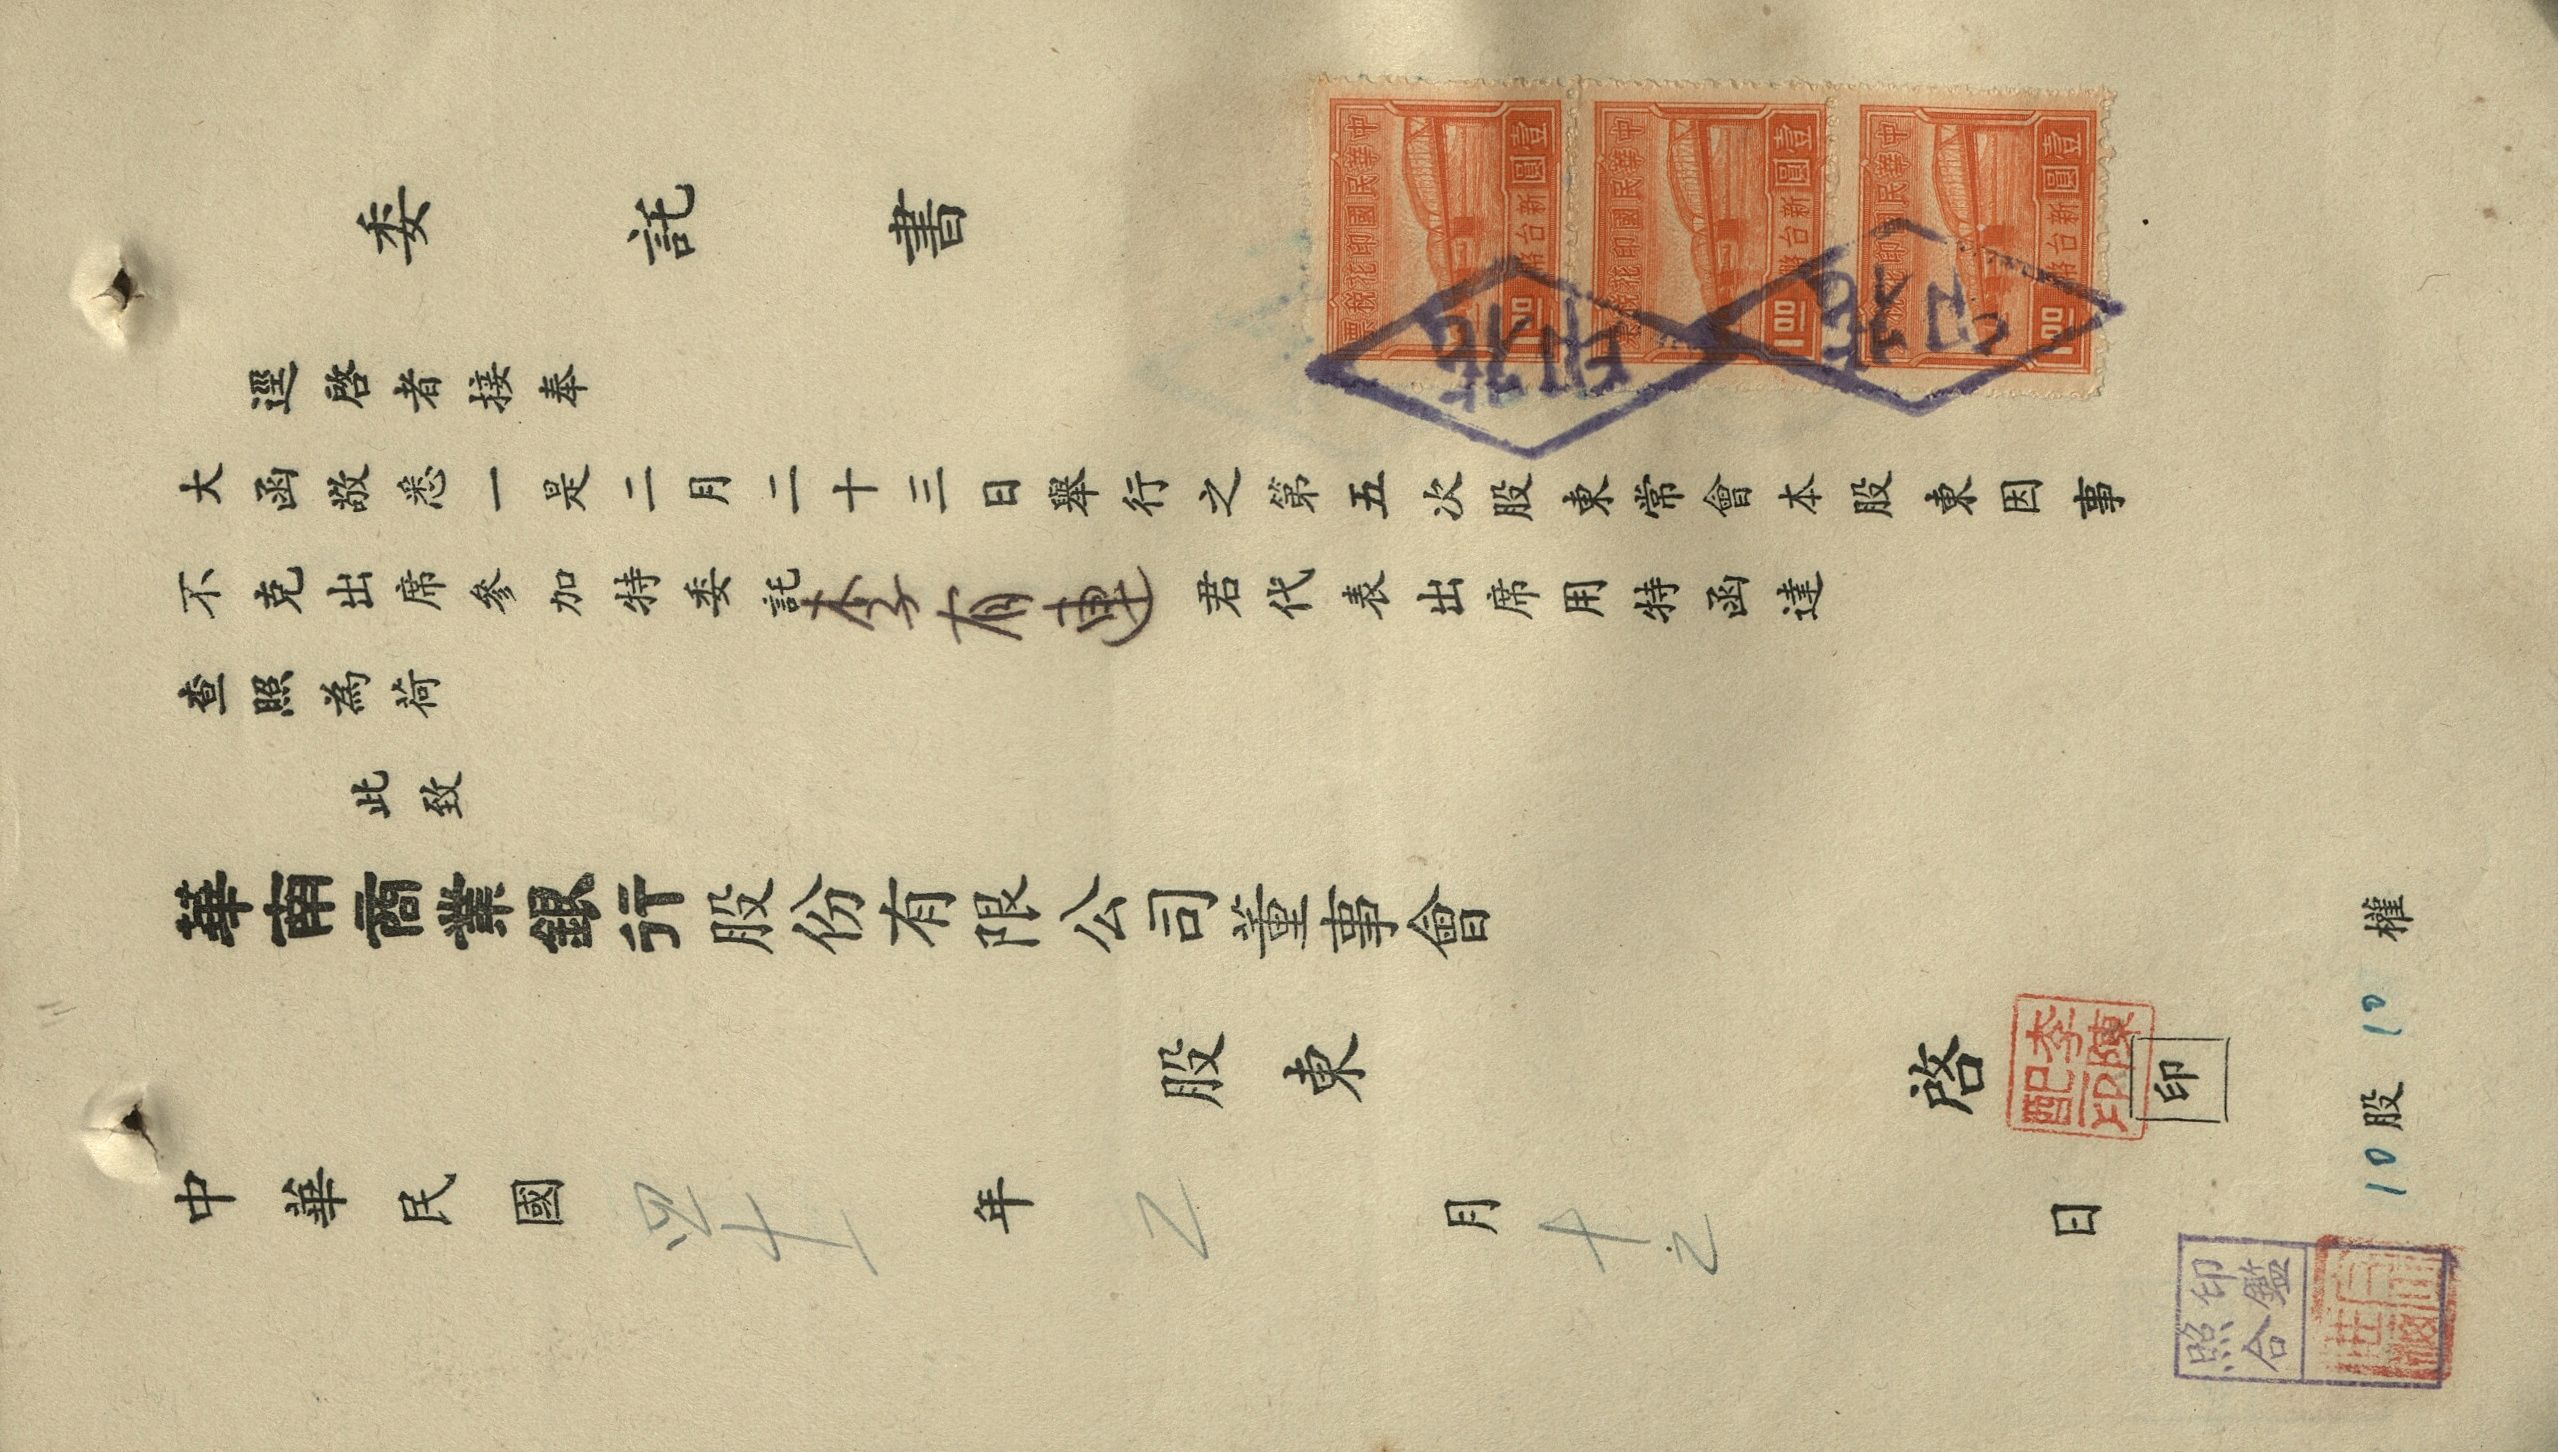 委託書
逕啓者接奉
大函敬悉一是二月二十三日舉行之第五次股東常會本股東因事
不克出席參加特委託李有連君代表出席用特函達
查照為荷
此致
華南商業銀行股份有限公司董事會
股東 啓 印
中華民國四十一年乙月十乙日
10股10權
中華民國印花稅票
壹圓新台幣
1.00
中華民國印花稅票
壹圓新台幣
1.00
中華民國印花稅票
壹圓新台幣
1.00
印花
印花
李陳
印
印鑑
照合